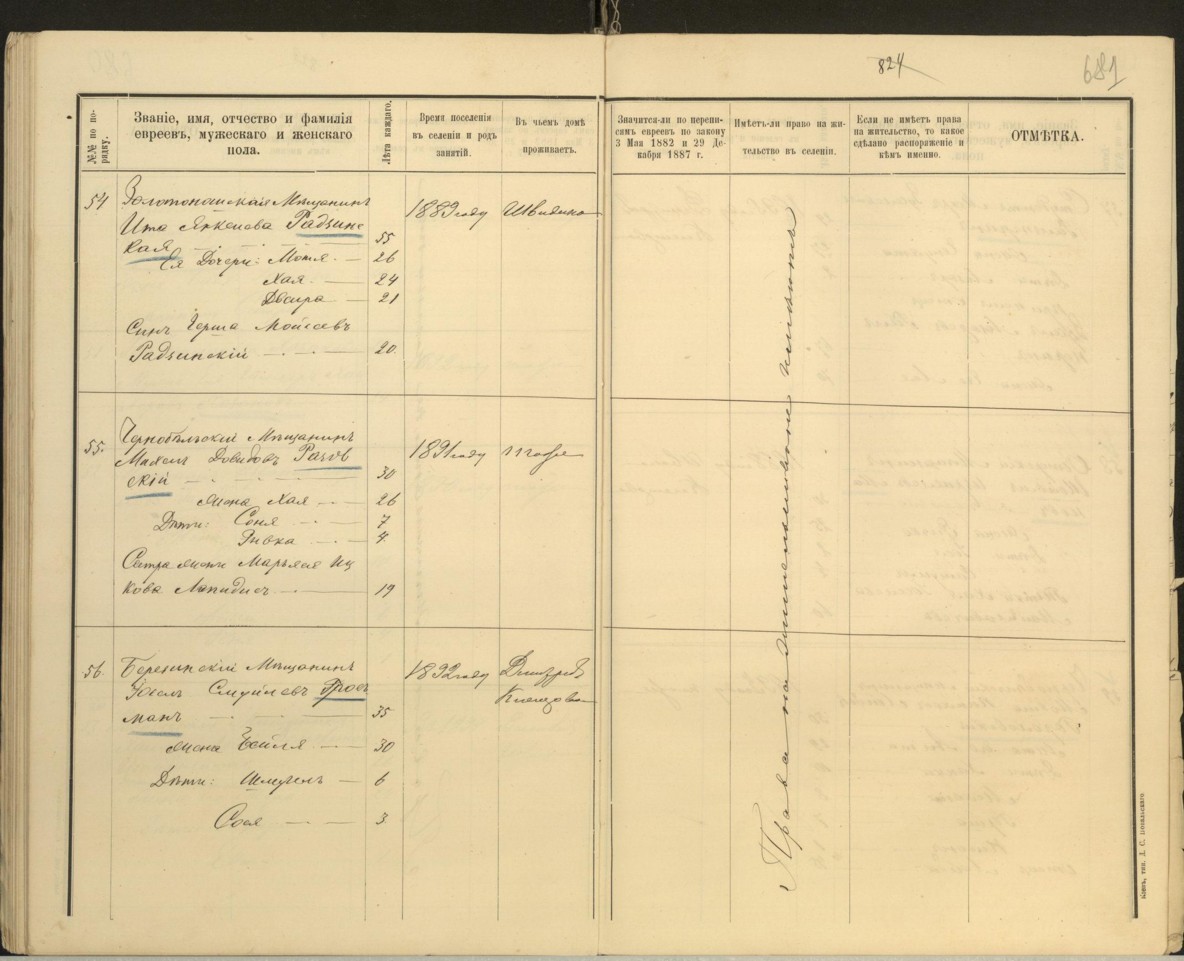 824
681
№№ по порядку.
Званіе, имя, отчество и фамилія
евреевъ, мужескаго и женскаго
пола.
Лѣта каждаго.
Время поселенія
въ селеніи и родъ
занятій.
Въ чьемъ домѣ
проживаетъ.
Значится-ли по перепи-
сямъ евреевъ по закону
3 Мая 1882 и 29 Де-
кабря 1887 г.
Имѣетъ-ли право на жи-
тельство въ селеніи.
Если не имѣетъ права
на жительство, то какое
сдѣлано распоряженіе и
кѣмъ именно.
ОТМѢТКА.
54 Золотоношская Мѣщанинъ 1889 году
Ита Радзинс
кая 55
Ея Дочери: Мотя 26
Хая 24
Двойра 21
Сынъ Герша Мойсеевъ
Радзинскій 20
55. Чернобыльскій Мѣщанинъ 1891 году
Михель Довидовъ
скій 30
Жена Хая 26
Дѣти: Соня 7
Ривка 4
Сестра жены Марьяся Иц
кова 19
56. Березинскій Мѣщанинъ 1892 году
манъ 35
Жена Бейля 30
Дѣти: Шмуель 6
Сося 3
Права на жительство не имѣютъ
Кіевъ, тип.